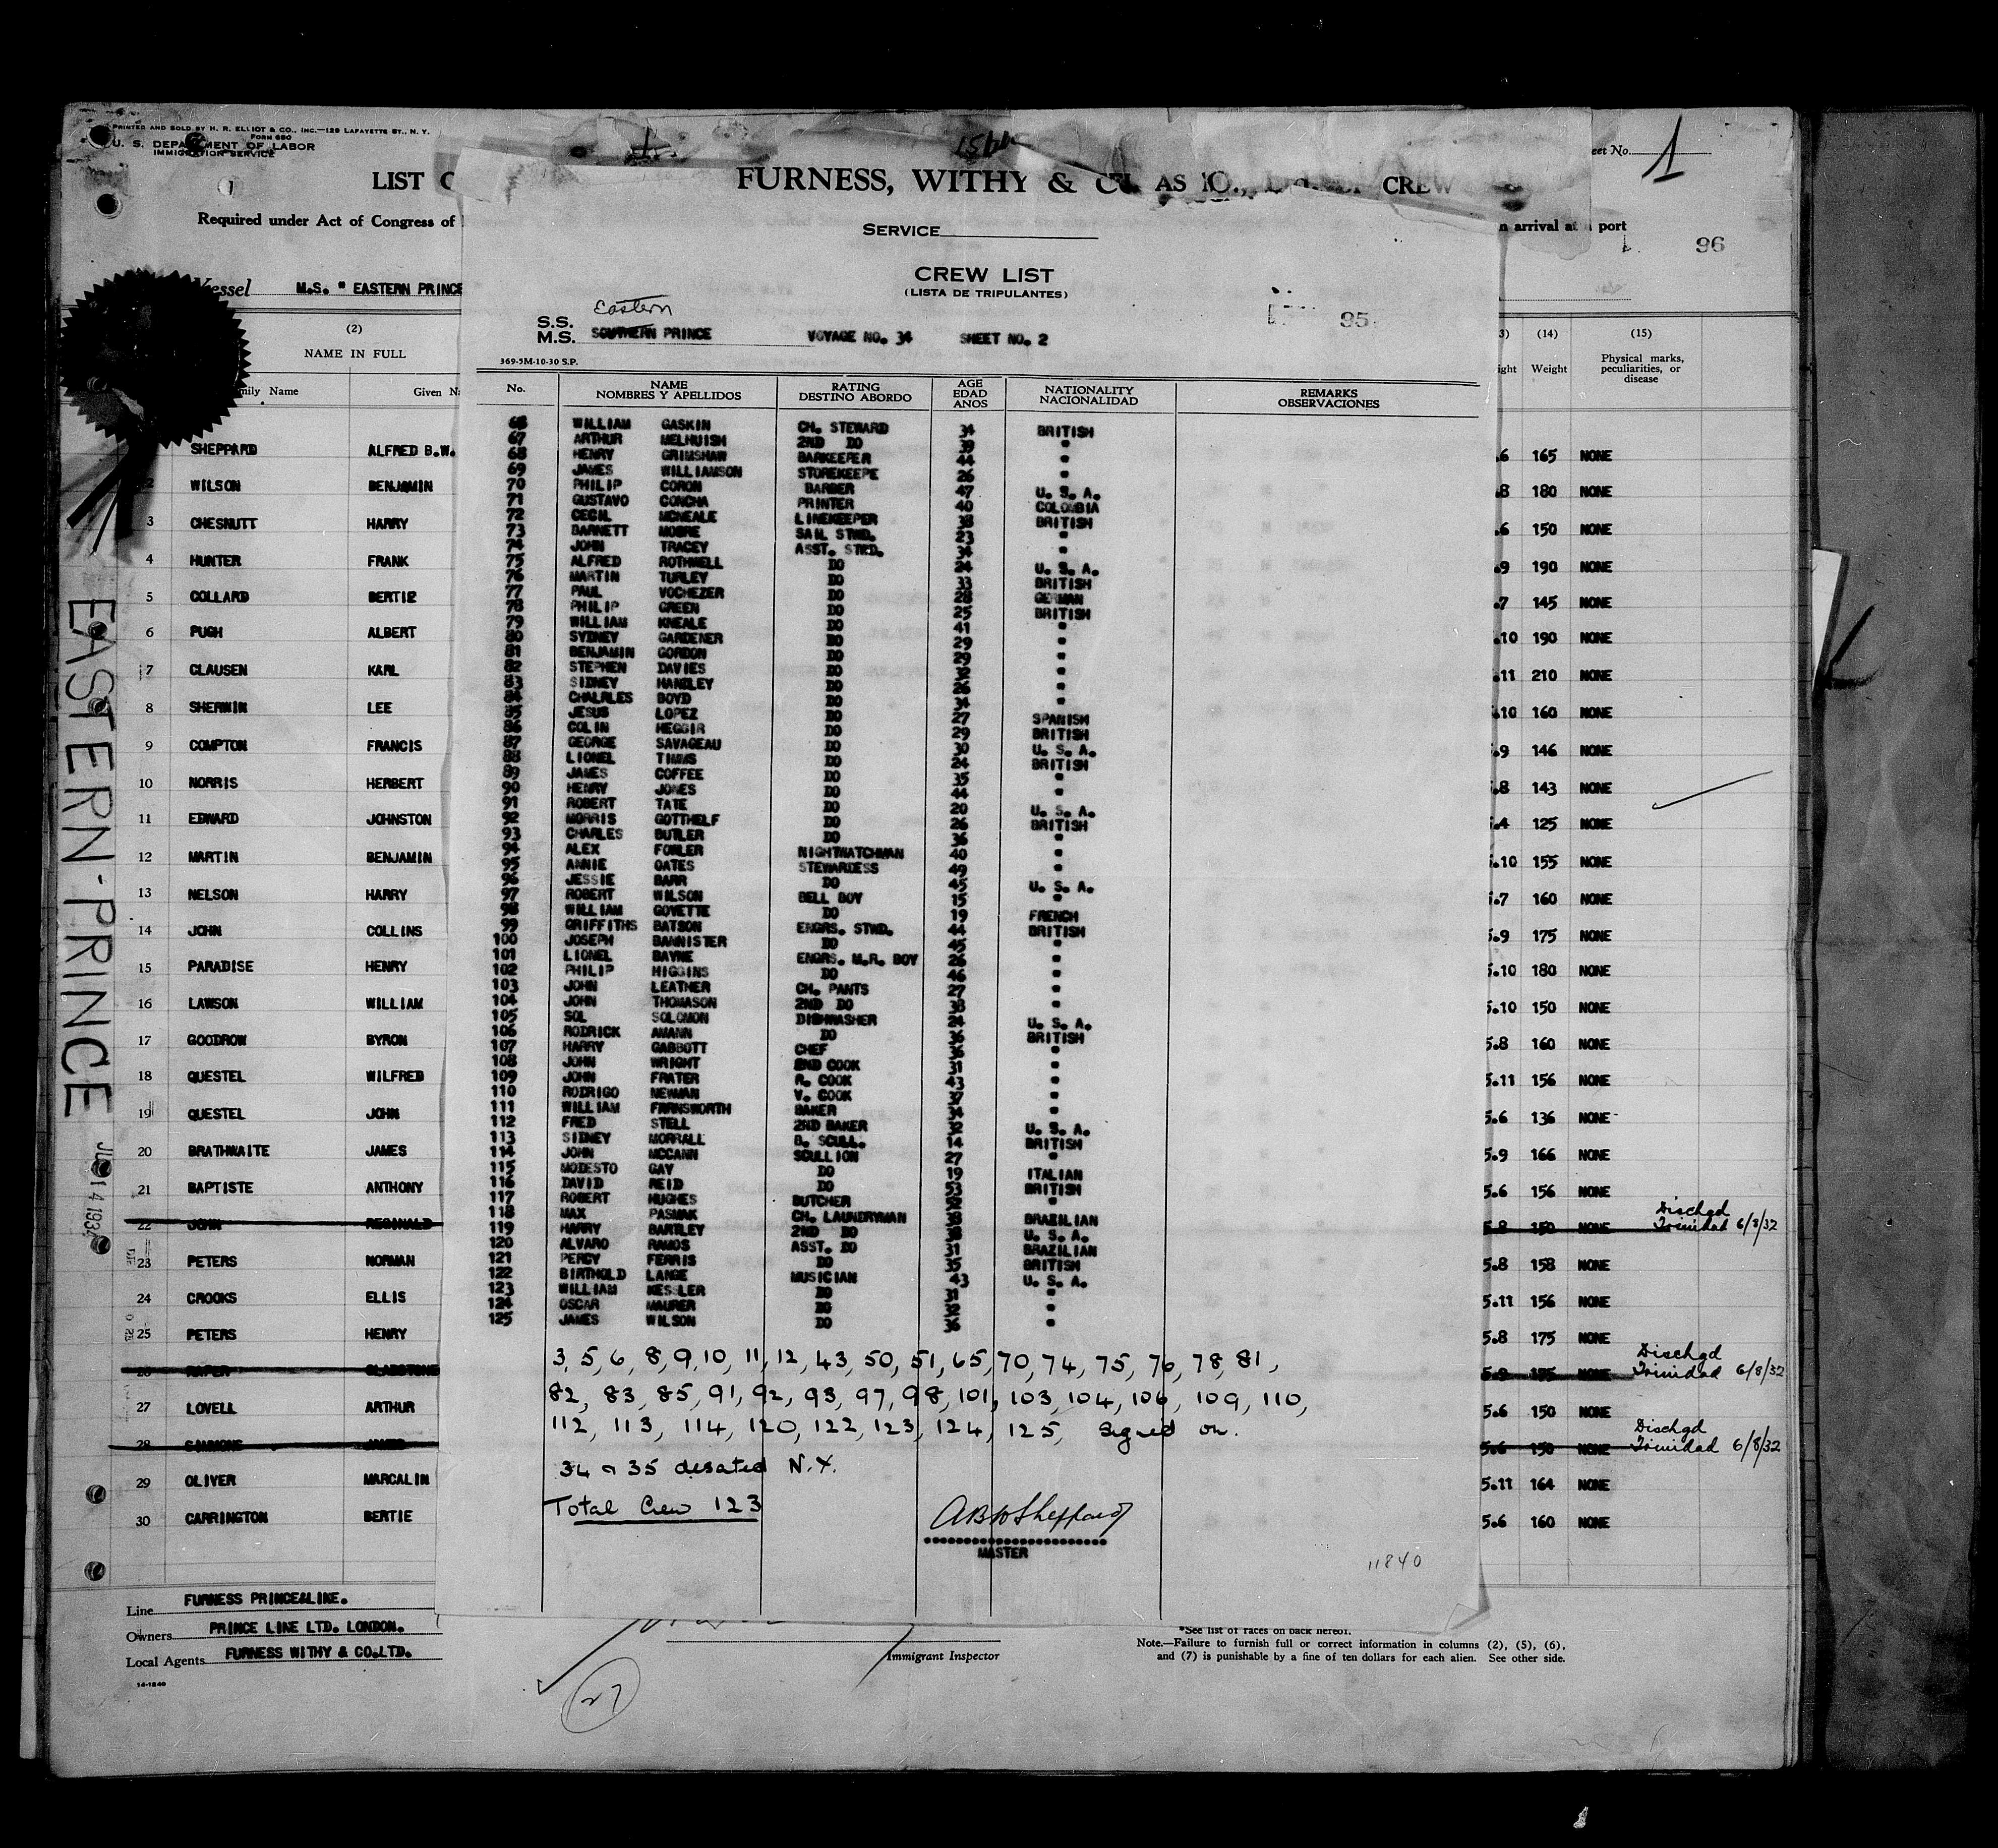 PRINTED AND SOLD BY H. R. ELLIOT & CO., INC.—129 LAFAYETTE ST., N. Y.
FORM 680
U. S. DEPARTMENT OF LABOR
IMMIGRATION SERVICE
1
LIST
Required under Act of Congress of
Vessel M.S. " EASTERN PRINCE
(2)
NAME IN FULL
Family Name Given
SHEPPARD ALFRED B.W.
2 WILSON BENJAMIN
3 CHESNUTT HARRY
4 HUNTER FRANK
5 COLLARD BERTIE
6 PUGH ALBERT
7 CLAUSEN KARL
8 SHERWIN LEE
9 COMPTON FRANCIS
10 NORRIS HERBERT
11 EDWARD JOHNSTON
12 MARTIN BENJAMIN
13 NELSON HARRY
14 JOHN COLLINS
15 PARADISE HENRY
16 LAWSON WILLIAM
17 GOODROW BYRON
18 QUESTEL WILFRED
19 QUESTEL JOHN
20 BRATHWAITE JAMES
21 BAPTISTE ANTHONY
22 JOHN REGINALD
23 PETERS NORMAN
24 CROOKS ELLIS
25 PETERS HENRY
26 GLADSTONE
27 LOVELL ARTHUR
28 SIMMONS JAMES
29 OLIVER MARCALIN
30 CARRINGTON BERTIE
Line FURNESS PRINCE&LINE.
Owners PRINCE LINE LTD. LONDON.
Local Agents FURNESS WITHY & CO.LTD.
14-1240
EASTERN-PRINCE
FURNESS, WITHY & CO.
AS
CREW
SERVICE
CREW LIST
(LISTA DE TRIPULANTES)
95
Eastern
S.S.
M.S. SOUTHERN PRINCE VOYAGE NO. 34 SHEET NO. 2
369-5M-10-30 S.P.
No. NAME RATING AGE NATIONALITY REMARKS
NOMBRES Y APELLIDOS DESTINO ABORDO EDAD NACIONALIDAD OBSERVACIONES
ANOS
66 WILLIAM GASKIN CH. STEWARD 34 BRITISH
67 ARTHUR MELHUISH 2ND DO 39 "
68 HENRY GRIMSHAW BARKEEPER 44 "
69 JAMES WILLIAMSON STOREKEEPE 26 "
70 PHILIP CORON BARBER 47 U. S. A.
71 GUSTAVO CONCHA PRINTER 40 COLOMBIA
72 CECIL MCNEALE LINEKEEPER 38 BRITISH
73 BARNETT MOORE SAIL STWD. 23 "
74 JOHN TRACEY ASST. STWD. 34 "
75 ALFRED ROTHWELL DO 24 U. S. A.
76 MARTIN TURLEY DO 33 BRITISH
77 PAUL VOCHEZER DO 28 GERMAN
78 PHILIP GREEN DO 25 BRITISH
79 WILLIAM KNEALE DO 41 "
80 SYDNEY GARDENER DO 29 "
81 BENJAMIN GORDON DO 29 "
82 STEPHEN DAVIES DO 32 "
83 SIDNEY HANDLEY DO 26 "
84 CHALRLES BOYD DO 34 "
85 JESUS LOPEZ DO 27 SPANISH
86 COLIN HEGGIR DO 29 BRITISH
87 GEORGE SAVAGEAU DO 30 U. S. A.
88 LIONEL TIMMS DO 24 BRITISH
89 JAMES COFFEE DO 35 "
90 HENRY JONES DO 44 "
91 ROBERT TATE DO 20 U. S. A.
92 MORRIS GOTTHELF DO 26 BRITISH
93 CHARLES BUTLER DO 36 "
94 ALEX FOWLER NIGHTWATCHMAN 40 "
95 ANNIE OATES STEWARDESS 49 "
96 JESSIE BARR DO 45 U. S. A.
97 ROBERT WILSON BELL BOY 15 "
98 WILLIAM GOVETTE DO 19 FRENCH
99 GRIFFITHS BATSON ENGRS. STWD. 44 BRITISH
100 JOSEPH BANNISTER DO 45 "
101 LIONEL BAYNE ENGRS. M.R. BOY 26 "
102 PHILIP HIGGINS DO 46 "
103 JOHN LEATHER CH. PANTS 27 "
104 JOHN THOMASON 2ND DO 38 "
105 SOL SOLOMON DISHWASHER 24 U. S. A.
106 RODRICK AMANN DO 36 BRITISH
107 HARRY GABBOTT CHEF 36 "
108 JOHN WRIGHT 2ND COOK 31 "
109 JOHN FRATER R. COOK 43 "
110 RODRIGO NEWMAN V. COOK 37 "
111 WILLIAM FARNSWORTH BAKER 34 "
112 FRED STELL 2ND BAKER 32 U. S. A.
113 SIDNEY MORRALL B. SCULL. 14 BRITISH
114 JOHN MCCANN SCULLION 27 "
115 MODESTO GAY DO 19 ITALIAN
116 DAVID REID DO 53 BRITISH
117 ROBERT HUGHES BUTCHER 52 "
118 MAX PASMAK CH. LAUNDRYMAN 38 BRAZILIAN
119 HARRY BARTLEY 2ND DO 38 U. S. A.
120 ALVARO RAMOS ASST. DO 31 BRAZILIAN
121 PERCY FERRIS DO 35 BRITISH
122 BIRTHOLD LANGE MUSICIAN 43 U. S. A.
123 WILLIAM KESSLER DO 31 "
124 OSCAR MAURER DO 32 "
125 JAMES WILSON DO 36 "
3, 5, 6, 8, 9, 10, 11, 12, 43, 50, 51, 65, 70, 74, 75, 76, 78, 81,
82, 83, 85, 91, 92, 93, 97, 98, 101, 103, 104, 106, 109, 110,
112, 113, 114, 120, 122, 123, 124, 125, Signed on.
34 & 35 deserted N.Y.
Total Crew 123
ABW Sheppard
MASTER
11840
Immigrant Inspector
27
*See list of races on back hereof.
Note.—Failure to furnish full or correct information in columns (2), (5), (6),
and (7) is punishable by a fine of ten dollars for each alien. See other side.
eet No. 1
n arrival at a port
96
3) (14) (15)
ight Weight Physical marks,
peculiarities, or
disease
.6 165 NONE
.8 180 NONE
.6 150 NONE
.9 190 NONE
.7 145 NONE
.10 190 NONE
.11 210 NONE
.10 160 NONE
.9 146 NONE
.8 143 NONE
.4 125 NONE
5.10 155 NONE
5.7 160 NONE
5.9 175 NONE
5.10 180 NONE
5.10 150 NONE
5.8 160 NONE
5.11 156 NONE
5.6 136 NONE
5.9 166 NONE
5.6 156 NONE
5.8 150 NONE Dischgd
Trinidad 6/8/32
5.8 158 NONE
5.11 156 NONE
5.8 175 NONE
5.9 175 NONE Dischgd
Trinidad 6/8/32
5.6 150 NONE
5.6 150 NONE Dischgd
Trinidad 6/8/32
5.11 164 NONE
5.6 160 NONE